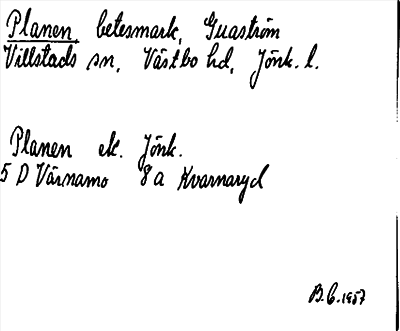 Planen, betesmark, Guaström
Villstads sn, Västbo hd, Jönk. l.
Planen ek. Jönk.
5 D Värnamo 8a Kvarnaryd
B.C. 1957